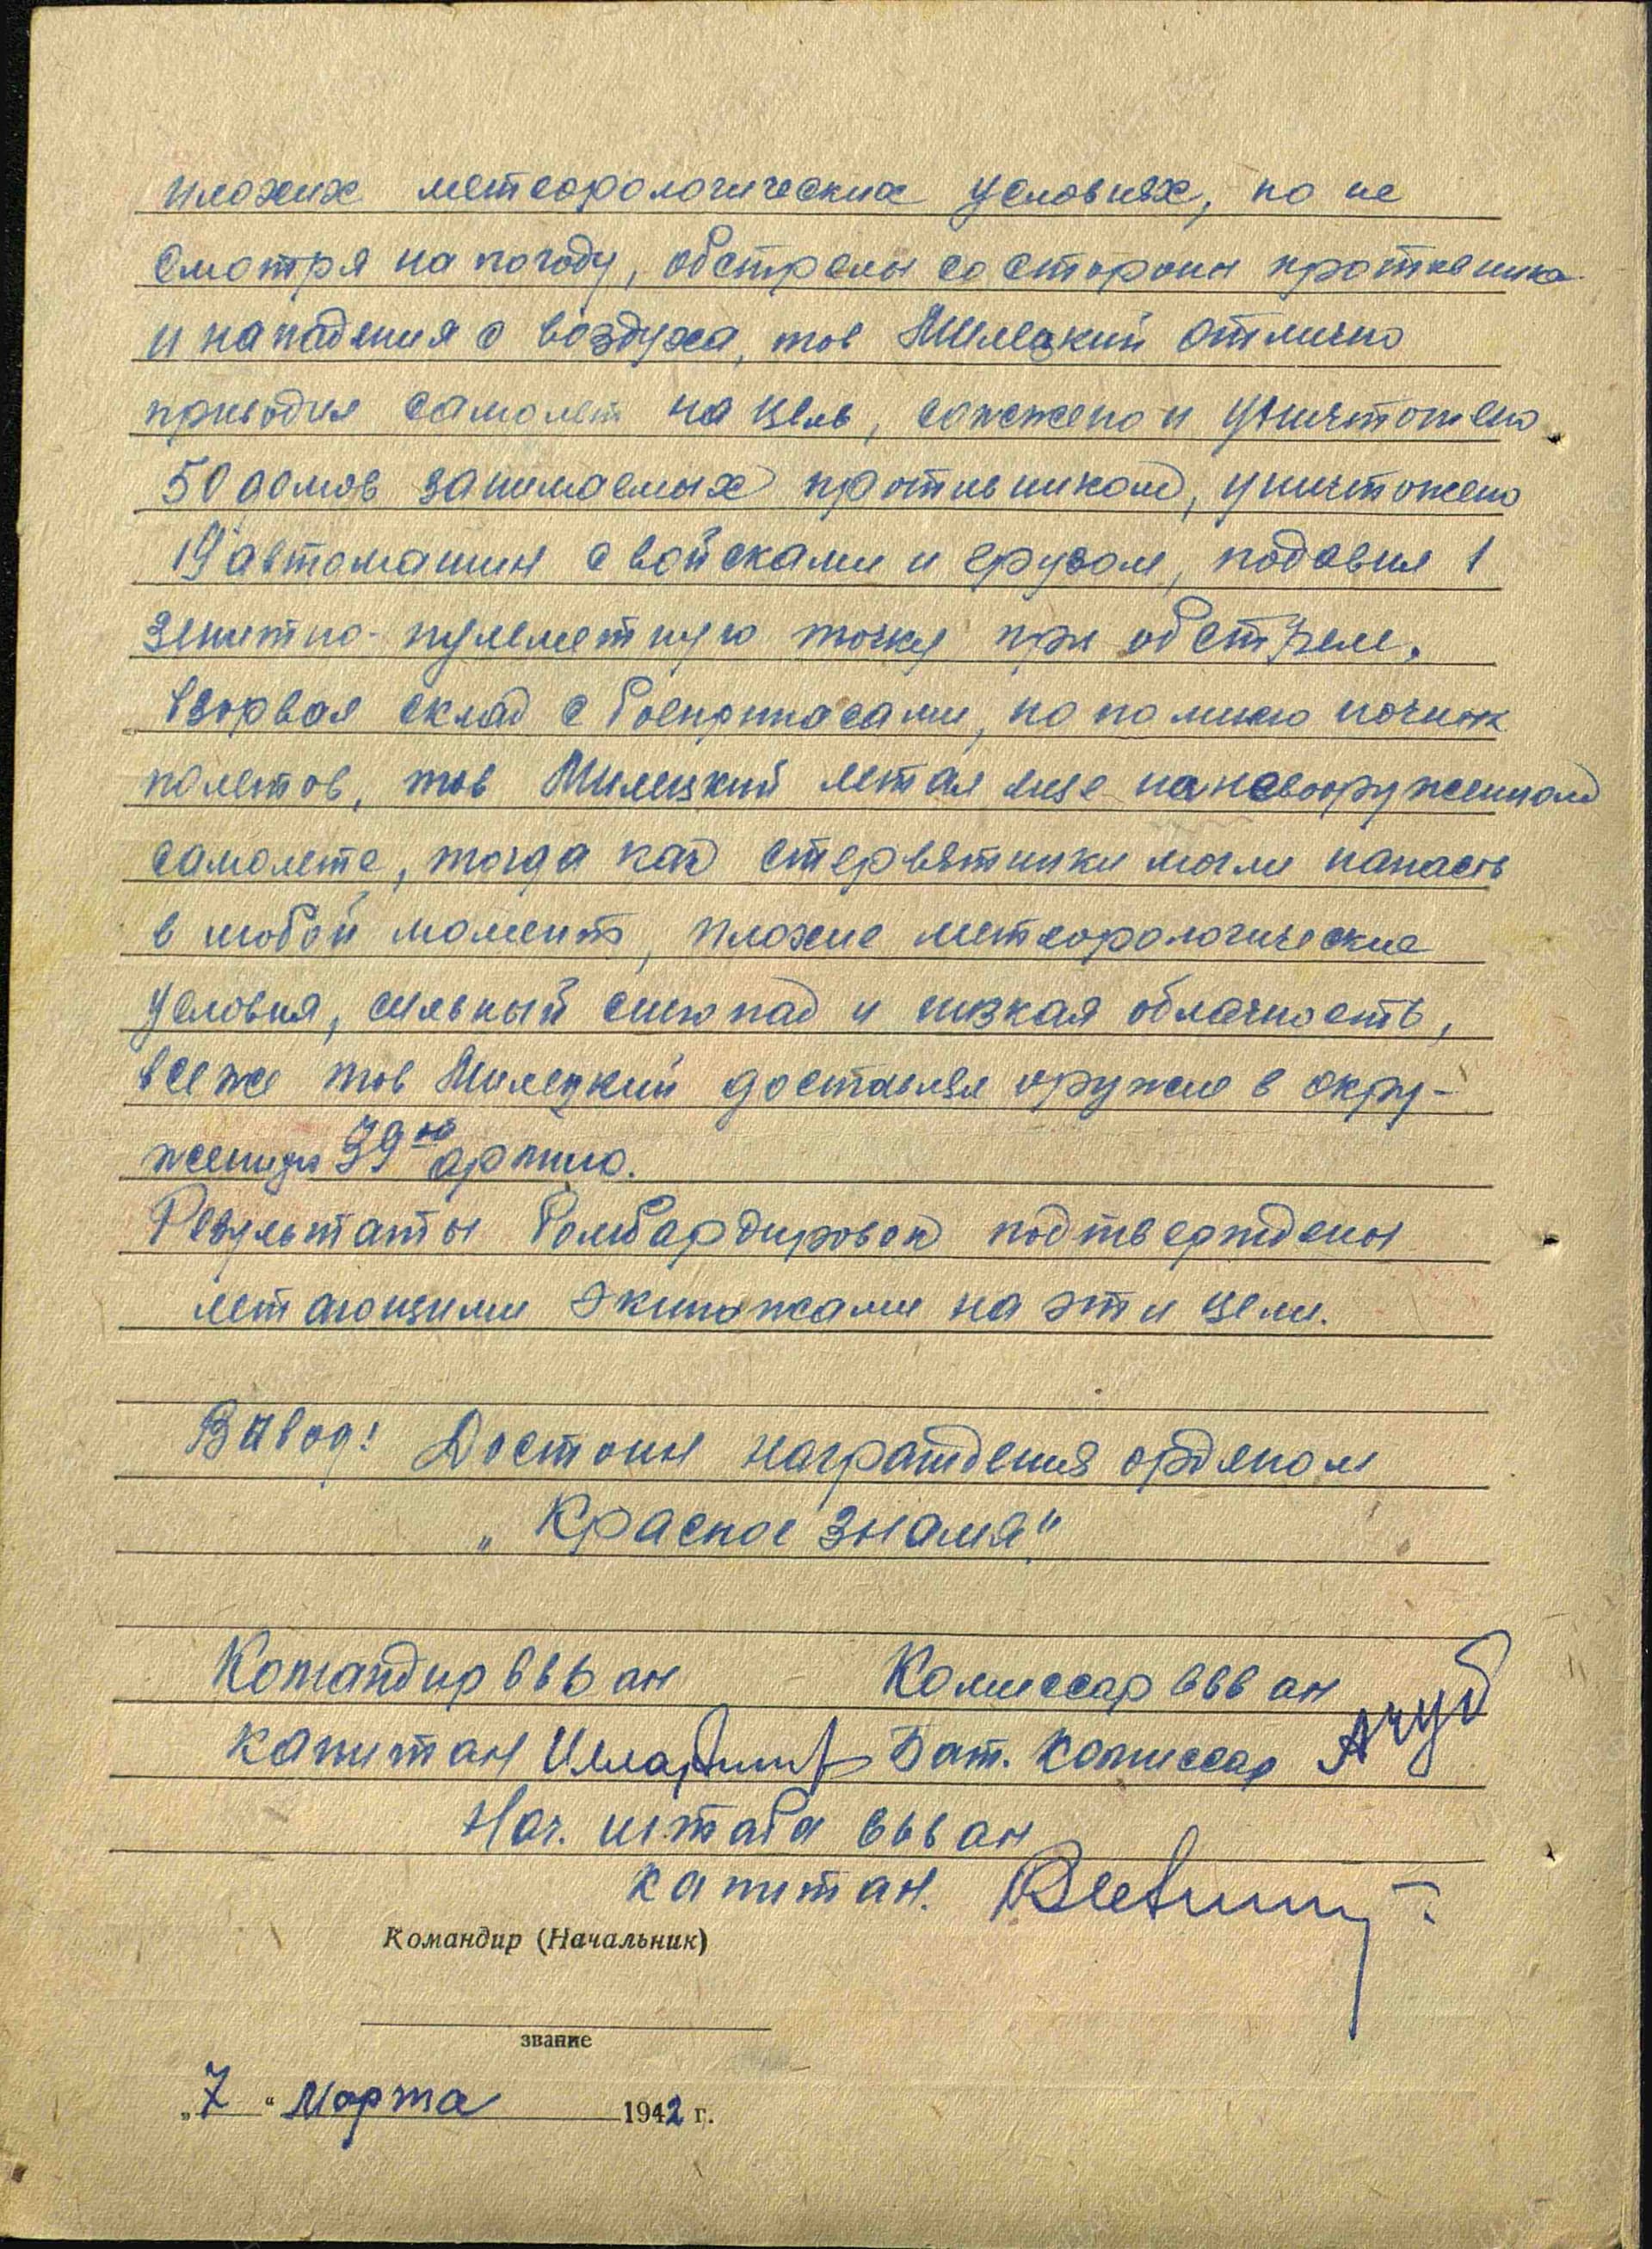 плохих метеорологических условиях, но не
смотря на погоду, обстрелы со стороны противника
и нападения с воздуха, тов Милецкий отлично
приводил самолет на цель, сожжено и уничтожено
50 домов занимаемых противником, уничтожено
19 автомашин с войсками и грузом, подавил 1
зенитно-пулеметную точку при обстреле.
Взорвал склад с боеприпасами, но помимо ночных
полетов, тов Милецкий летал еще на невооруженном
самолете, тогда как стервятники могли напасть
в любой момент, плохие метеорологические
условия, сильный снегопад и низкая облачность,
все же тов Милецкий доставлял оружие в окру-
женную 39ую армию.
Результаты бомбардировок подтверждены
летающими экипажами на эти цели.
Вывод! Достоин награждения орденом
„Красное Знамя"
Командир ввв ап Комиссар ввв ап
капитан Бат. Комиссар
Нач. штаба ввв ап
капитан.
Командир (Начальник)
звание
„7" Марта 1942 г.